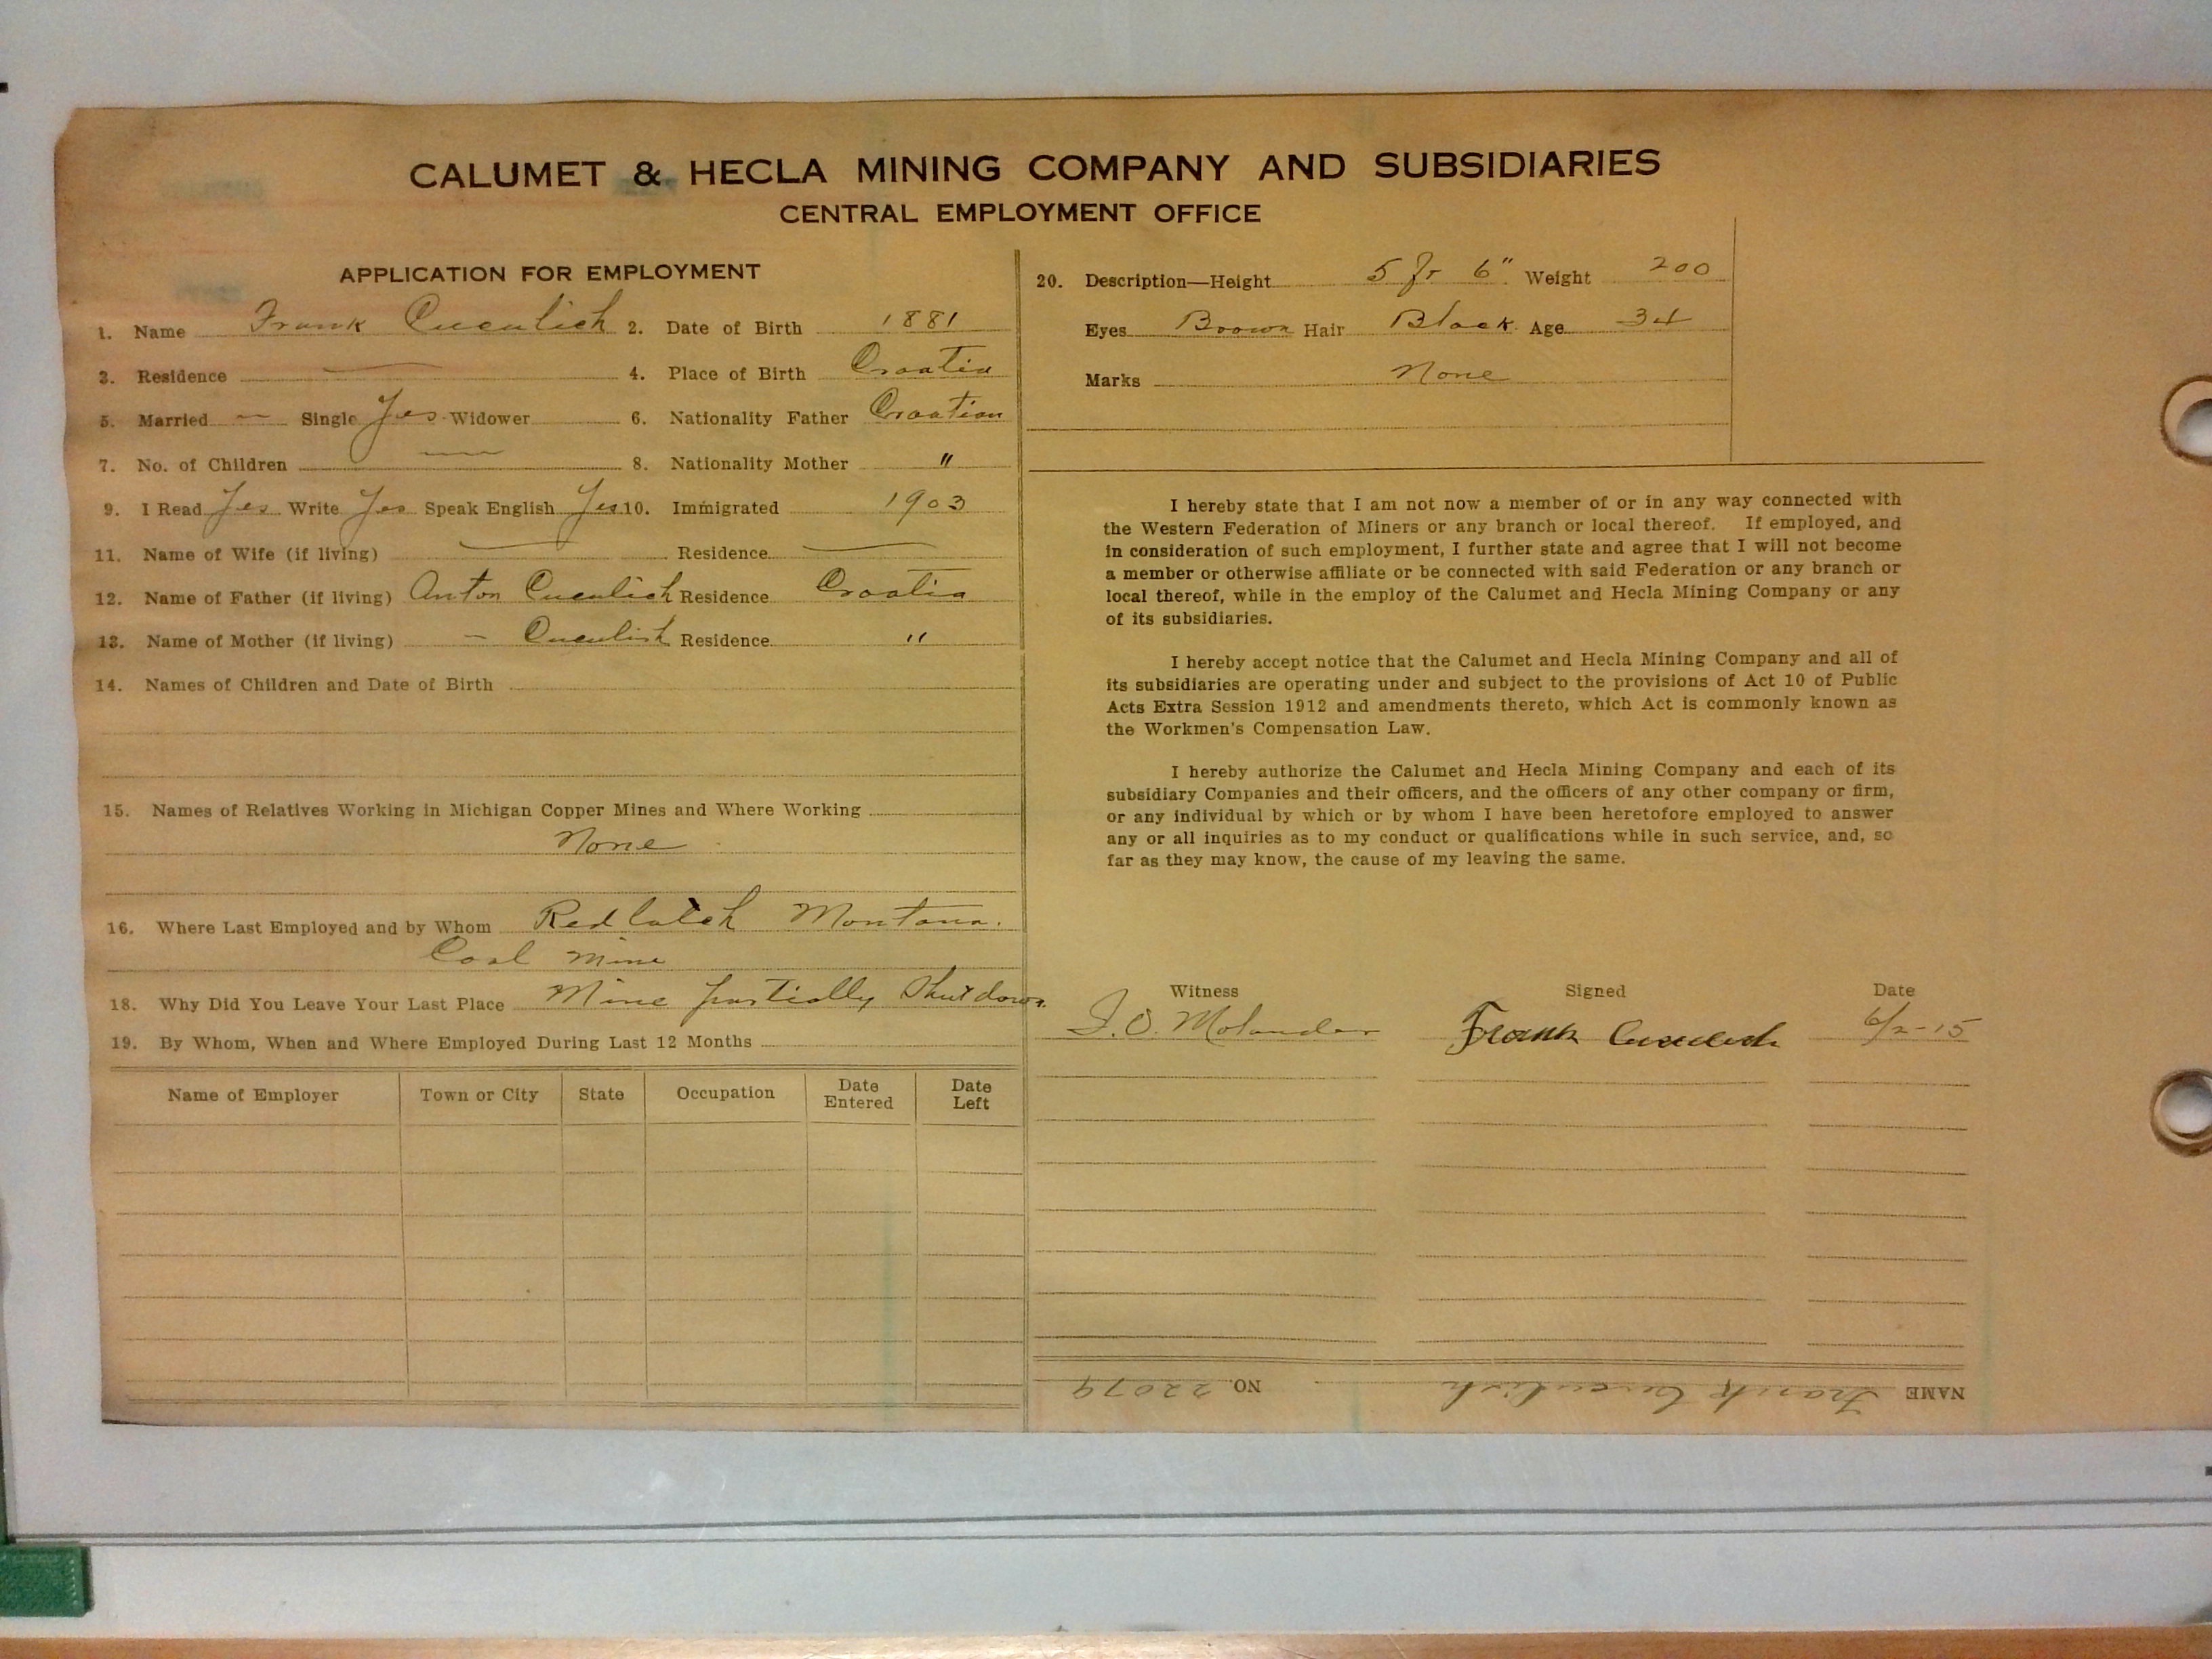 CALUMET & HECLA MINING COMPANY AND SUBSIDIARIES
CENTRAL EMPLOYMENT OFFICE
APPLICATION FOR EMPLOYMENT
1. Name Frank Cuculich 2. Date of Birth 1881
3. Residence — 4. Place of Birth Croatia
5. Married — Single Yes Widower 6. Nationality Father Croatian
7. No. of Children — 8. Nationality Mother "
9. I Read Yes Write Yes Speak English Yes 10. Immigrated 1903
11. Name of Wife (if living) — Residence —
12. Name of Father (if living) Anton Cuculich Residence Croatia
13. Name of Mother (if living) — Cuculich Residence "
14. Names of Children and Date of Birth
15. Names of Relatives Working in Michigan Copper Mines and Where Working
None
16. Where Last Employed and by Whom Redlatch Montana.
Coal Mine
18. Why Did You Leave Your Last Place Mine partially Shutdown.
19. By Whom, When and Where Employed During Last 12 Months
Name of Employer Town or City State Occupation Date Entered Date Left
20. Description—Height 5 ft 6" Weight 200
Eyes Brown Hair Black Age 34
Marks None
I hereby state that I am not now a member of or in any way connected with
the Western Federation of Miners or any branch or local thereof. If employed, and
in consideration of such employment, I further state and agree that I will not become
a member or otherwise affiliate or be connected with said Federation or any branch or
local thereof, while in the employ of the Calumet and Hecla Mining Company or any
of its subsidiaries.
I hereby accept notice that the Calumet and Hecla Mining Company and all of
its subsidiaries are operating under and subject to the provisions of Act 10 of Public
Acts Extra Session 1912 and amendments thereto, which Act is commonly known as
the Workmen's Compensation Law.
I hereby authorize the Calumet and Hecla Mining Company and each of its
subsidiary Companies and their officers, and the officers of any other company or firm,
or any individual by which or by whom I have been heretofore employed to answer
any or all inquiries as to my conduct or qualifications while in such service, and, so
far as they may know, the cause of my leaving the same.
Witness Signed Date
J. O. Molander Frank Cuculich 6/2-15
NAME Frank Cuculich NO. 22079